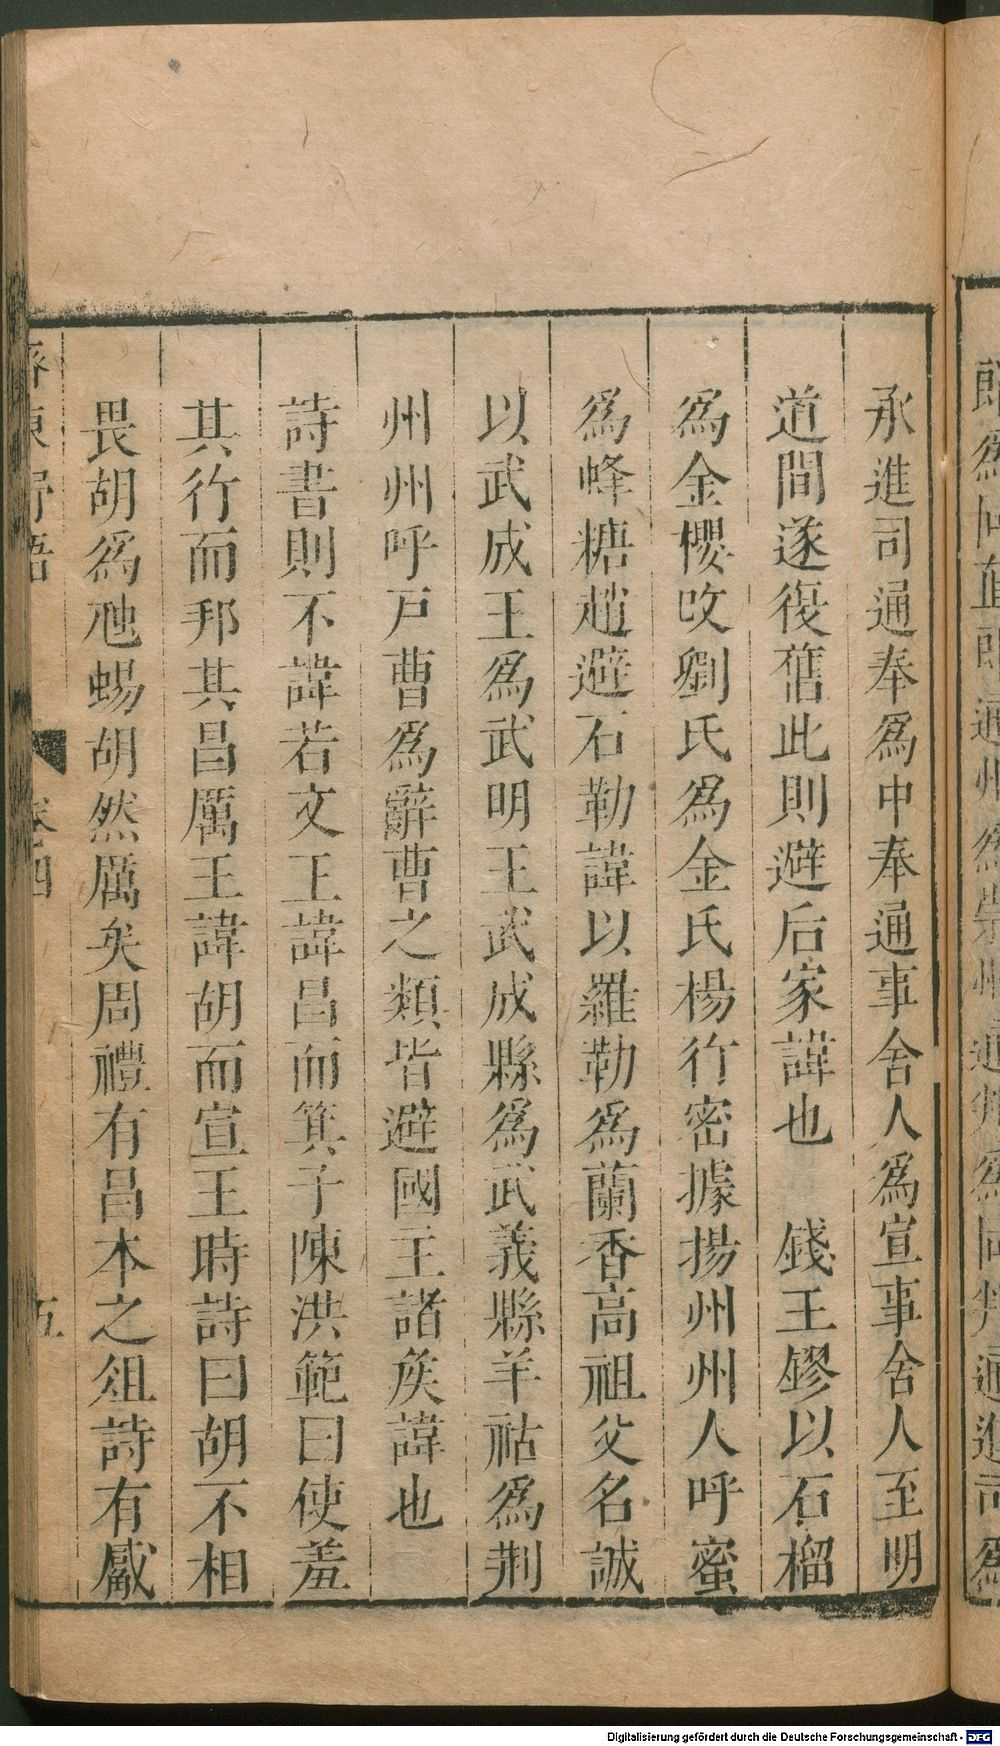 郎爲同直郎通州爲崇州通判爲同判通進司爲
承進司通奉爲中奉通事舍人爲宣事舍人至明
道間遂復舊此則避后家諱也　錢王鏐以石榴
爲金櫻改劉氏爲金氏楊行密據揚州州人呼蜜
爲蜂糖趙避石勒諱以羅勒爲蘭香高祖父名誠
以武成王爲武明王武成縣爲武義縣羊祜爲荆
州州呼戶曹爲辭曹之類皆避國王諸侯諱也
詩書則不諱若文王諱昌而箕子陳洪範曰使羞
其行而邦其昌厲王諱胡而宣王時詩曰胡不相
畏胡爲虺蜴胡然厲矣周禮有昌本之俎詩有觱
齊東野語　卷之四　五
Digitalisierung gefördert durch die Deutsche Forschungsgemeinschaft - DFG